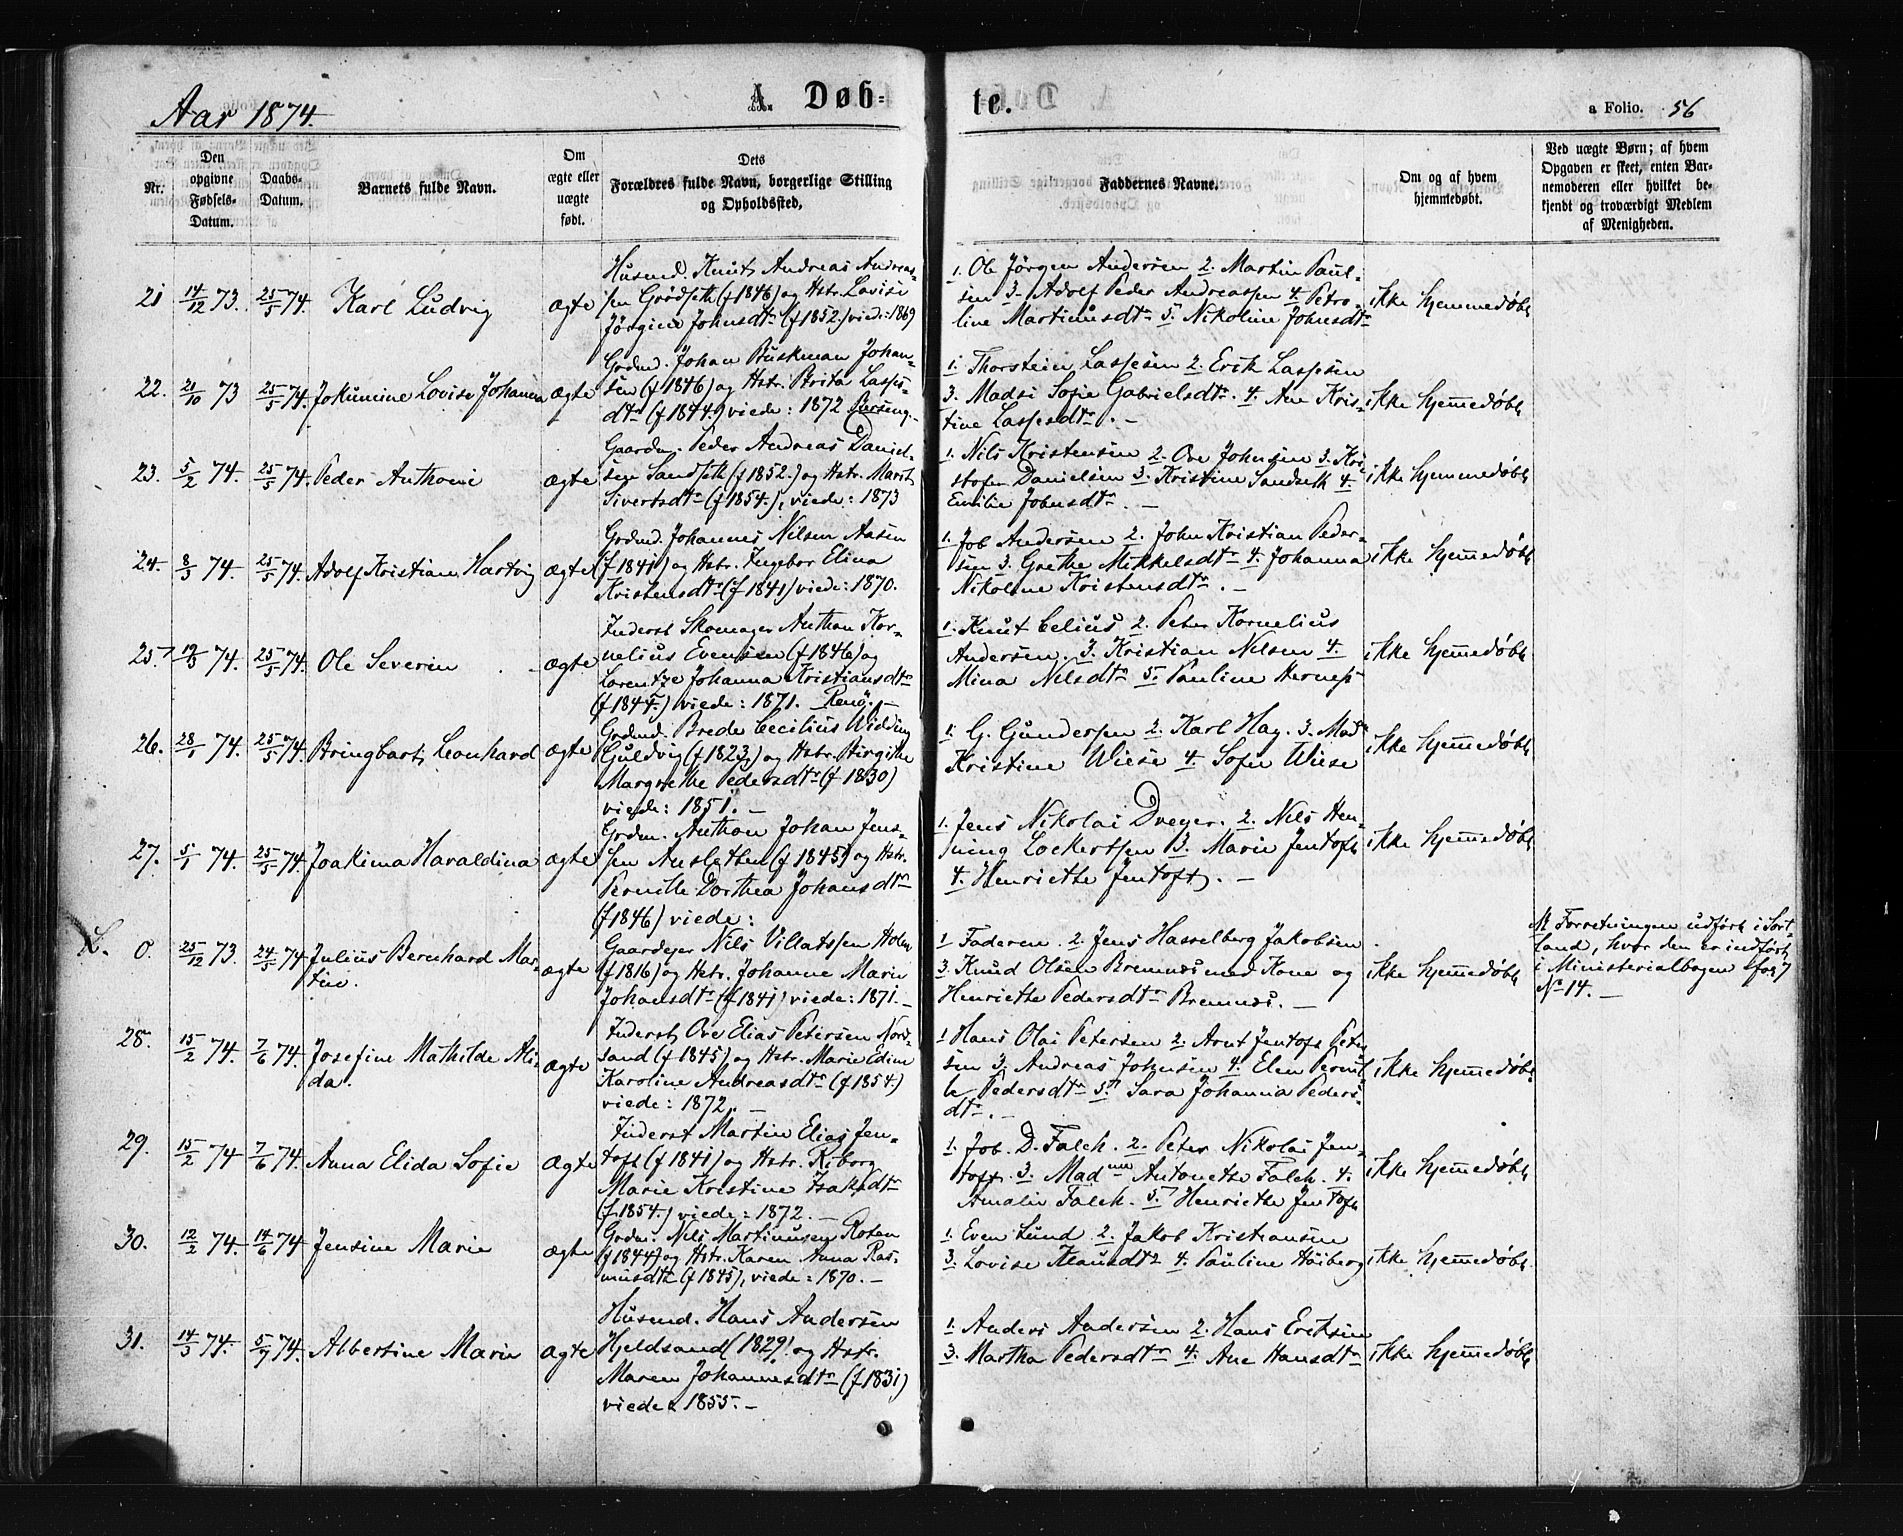 Aar 1874.
A. Døb-
te.
a Folio. 56
Nr.
Den
opgivne
Fødsels-
Datum.
Daabs-
Datum.
Barnets fulde Navn.
Om
ægte eller
uægte
født.
Dets
Forældres fulde Navn, borgerlige Stilling
og Opholdssted,
Faddernes Navne.
Om og af hvem
hjemmedøbt.
Ved uægte Børn; af hvem
Opgaven er skeet, enten Bar-
nemoderen eller hvilket be-
kjendt og troværdigt Medlem
af Menigheden.
21 14/12 73. 25/5 74. Karl Ludvig ægte
Husmd. Knut Andreas Andreas-
sen Grødseth (f 1846) og Hstr. Lovise
Jørgine Johnsdtr (f 1852.) viede: 1869
1. Ole Jørgen Andersen 2. Martin Paul-
sen 3. Adolf Peder Andreassen 4. Petro-
line Martinusdtr 5. Nikoline Johnsdtr
ikke hjemmedøbt
22. 21/10 73 25/5 74. Jokumine Lovise Johanna ægte
Grdmd. Johan Buskman Johan-
sen (f 1846) og Hstr. Brita Lasses-
dtr (f 1844.) viede: 1872
1. Thorstein Lassesen 2. Erik Lassesen
3. Madsi Sofie Gabrielsdtr. 4. Ane Kris-
tine Lassesdtr. -
ikke hjemmedøbt
23. 5/2 74. 25/5 74. Peder Anthoni ægte
Gaardm. Peder Andreas Daniel-
sen Sandseth (f 1852.) og Hstr. Marit
Sivertsdtr (f 1854.), viede: 1873
1. Nils Kristensen 2. Ove Johnsen 3. Kri-
stofer Danielsen 3. Kristine Sandseth 4.
Emilie Johnsdtr. -
ikke hjemmedøbt
24. 8/3 74. 25/5 74. Adolf Kristian Hartvig ægte
Grdmd. Johannes Nilsen Aasen
(f 1841) og Hstr. Ingebor Elina
Kristensdtr (f 1841) viede: 1870.
1. Job Andersen 2. John Kristian Peder-
sen 3. Grethe Mikkelsdtr 4. Johanna
Nikoline Kristensdtr. -
ikke hjemmedøbt
25. 19/3 74. 25/5 74. Ole Severin ægte
Inderst Skomager Anthon Kor-
nelius Evensen (f 1846) og
Lorentze Johanna Kristiansdtr
(f 1844.) viede: 1871. Renø. -
1. Knut Celius 2. Peter Kornelius
Andersen. 3. Kristian Nelsen 4.
Mina Nelsdtr 5. Pauline Hernes
ikke hjemmedøbt
26. 28/1 74. 25/5 74. Bringbart Leonhard ægte
Grdmd. Brede Cecilius Widding
Guldvig (f 1823) og Hstr. Birgithe
Margrethe Pedersdtr (f 1830)
viede: 1851. -
1. G. Gundersen 2. Karl Hay. 3. Mad
Kristine Wiese 4. Sofie Wiese
ikke hjemmedøbt
27. 5/1 74. 25/5 74. Joakima Haraldina ægte
Grdm. Anthon Johan Jens-
sen Ansletten (f 1845) og Hstr.
Pernille Dorthea Johansdtr
(f 1846) viede:
1. Jens Nikolai Dreyer. 2. Nils Hen-
ning Lockertsen 3. Marie Jentoft
4. Henriette Jentoft. -
ikke hjemmedøbt
L. 0. 25/12 73. 24/5 74 Julius Bernhard Mar-
tin. ægte
Gaardejer Nils Villatssen Holm
(f 1816) og Hstr. Johanne Marie
Johansdtr (f 1841) viede: 1871. -
1 Faderen. 2. Jens Hasselberg Jakobsen
3. Knud Olsen Bremnes med Kone og
Henriette Pedersdtr Bremnes. -
ikke hjemmedøbt
Forretningen udført i Sort-
land, hvor den er indført
i Ministerialbogen fol 7
No 14. -
28. 15/2 74. 7/6 74. Josefine Mathilde Ali-
da. ægte
Inderst Ove Elias Petersen Nord-
sand (f 1845) og Hstr. Marie Edine
Karoline Andreasdtr (f 1854.)
viede: 1872. -
1 Hans Olai Petersen 2. Arnt Jentoft Peter-
sen 3. Andreas Johnsen 4. Elen Pernil-
le Pedersdtr 5. Sara Johanna Peders-
dtr. -
ikke hjemmedøbt
29. 15/2 74 7/6 74. Anna Elida Sofie ægte
Inderst Martin Elias Jen-
toft (f 1841) og Hstr. Riborg
Marie Kristine Isaksdtr
(f 1854.) viede: 1872. -
1. Job. D. Falch. 2. Peter Nikolai Jen-
toft. 3. Madme Antonette Falch. 4.
Amalie Falch. 5. Henriette Jentoft
ikke hjemmedøbt
30. 12/2 74. 14/6 74 Jensine Marie ægte
Grdm. Nils Martinusen Roten
(f 1844) og Hstr. Karen Anna Ras-
musdtr (f 1845), viede: 1870. -
1. Even Lund 2. Jakob Kristiansen
3. Lovise Klausdtr 4. Pauline Høiberg
ikke hjemmedøbt.
31. 14/3 74. 5/7 74. Albertine Marie ægte
Husmd. Hans Andersen
Hjeldsand (1829) og Hstr.
Maren Johannesdtr (f 1831)
viede: 1855. -
1. Anders Andersen 2. Hans Eriksen
3. Martha Pedersdtr 4. Ane Hansdtr
ikke hjemmedøbt